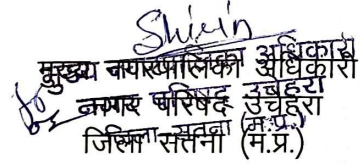 Shirin
मुख्य नगरपालिका अधिकारी
नगर परिषद उचेहरा
जिला सतना (म.प्र.)